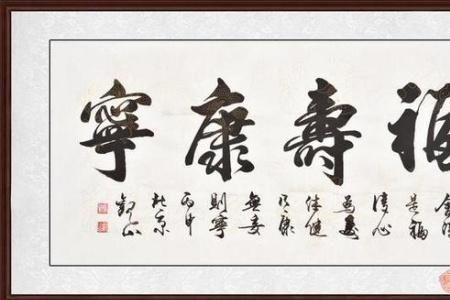 福壽康寧
是福
清心
為壽
体健
乃康
無妄
則寧
丙申
於京